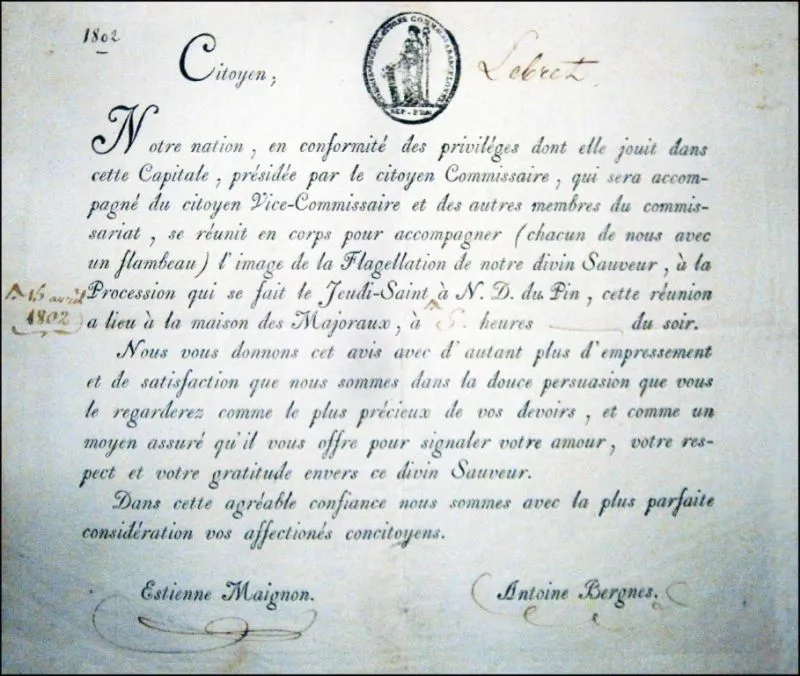 1802
Citoyen, Lebret
Notre nation, en conformité des priviléges dont elle jouit dans
cette Capitale, présidée par le citoyen Commissaire, qui sera accom-
pagné du citoyen Vice-Commissaire et des autres membres du commis-
sariat, se réunit en corps pour accompagner (chacun de nous avec
un flambeau) l'image de la Flagellation de notre divin Sauveur, à la
Procession qui se fait le Jeudi-Saint à N. D. du Pin, cette réunion
15 avril
1802
a lieu à la maison des Majoraux, à 5 heures du soir.
Nous vous donnons cet avis avec d'autant plus d'empressement
et de satisfaction que nous sommes dans la douce persuasion que vous
le regarderez comme le plus précieux de vos devoirs, et comme un
moyen assuré qu'il vous offre pour signaler votre amour, votre res-
pect et votre gratitude envers ce divin Sauveur.
Dans cette agréable confiance nous sommes avec la plus parfaite
considération vos affectionés concitoyens.
Estienne Maignon. Antoine Bergnes.